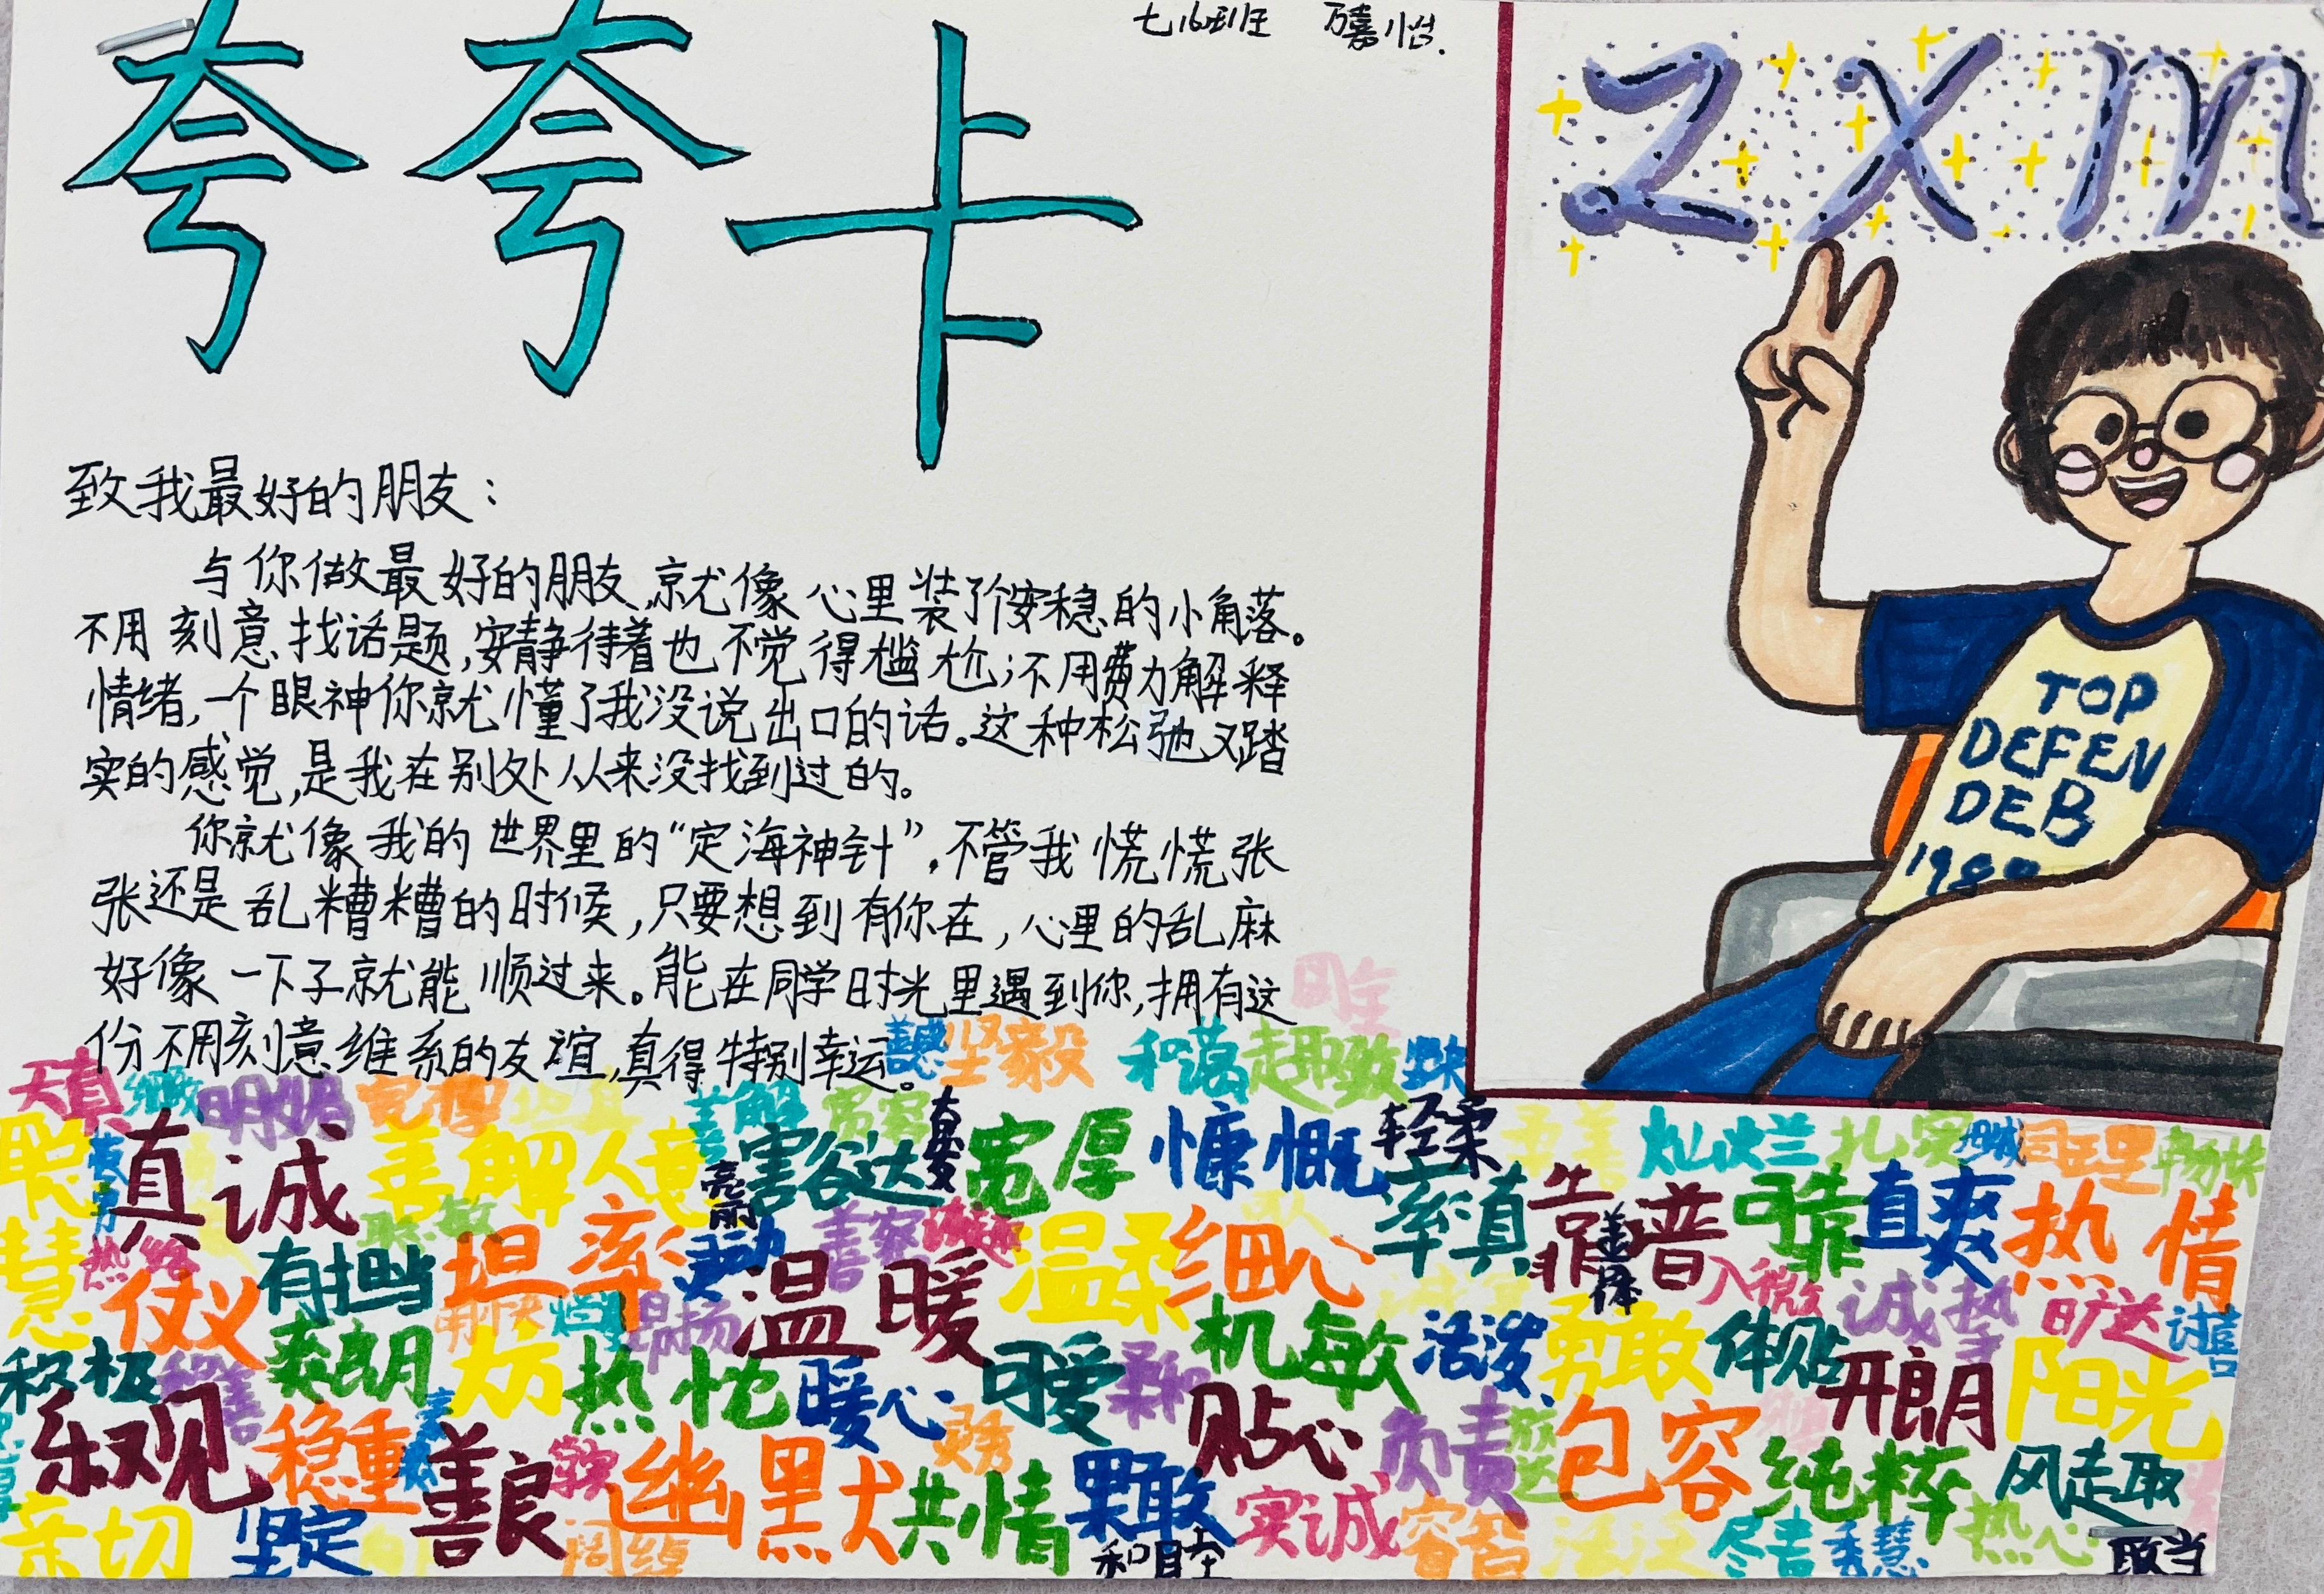 夸夸卡
七16班 万嘉怡.
zxm
致我最好的朋友：
与你做最好的朋友,就像心里装了个安稳的小角落。
不用刻意找话题,安静待着也不觉得尴尬;不用费力解释
情绪,一个眼神你就懂了我没说出口的话。这种松弛又踏
实的感觉,是我在别处从来没找到过的。
你就像我的世界里的“定海神针”,不管我慌慌张
张还是乱糟糟的时候,只要想到有你在,心里的乱麻
好像一下子就能顺过来。能在同学时光里遇到你,拥有这
份不用刻意维系的友谊,真得特别幸运。
TOP
DEFEN
DEB
坚毅 和蔼 趣致
天真 细致 明媚 宽厚 善解
真诚 善解人意 豁达 宽厚 慷慨 轻柔 灿烂 扎实 畅快
聪慧 聪敏 亮丽 率真 靠谱 可靠 直爽 热情
仗义 有担当 坦率 灵动 温暖 温柔 细心 入微 诚挚 旷达
积极 爽朗 昂扬 热忱 暖心 可爱 柔和 机敏 活泼 勇敢 体贴 开朗 阳光
乐观 稳重 善良 幽默 灵秀 共情 果敢 贴心 负责 包容 纯粹 风趣
亲切 坚定 周绰 和睦 实诚 睿智 尽责 秀慧 热心 敢当